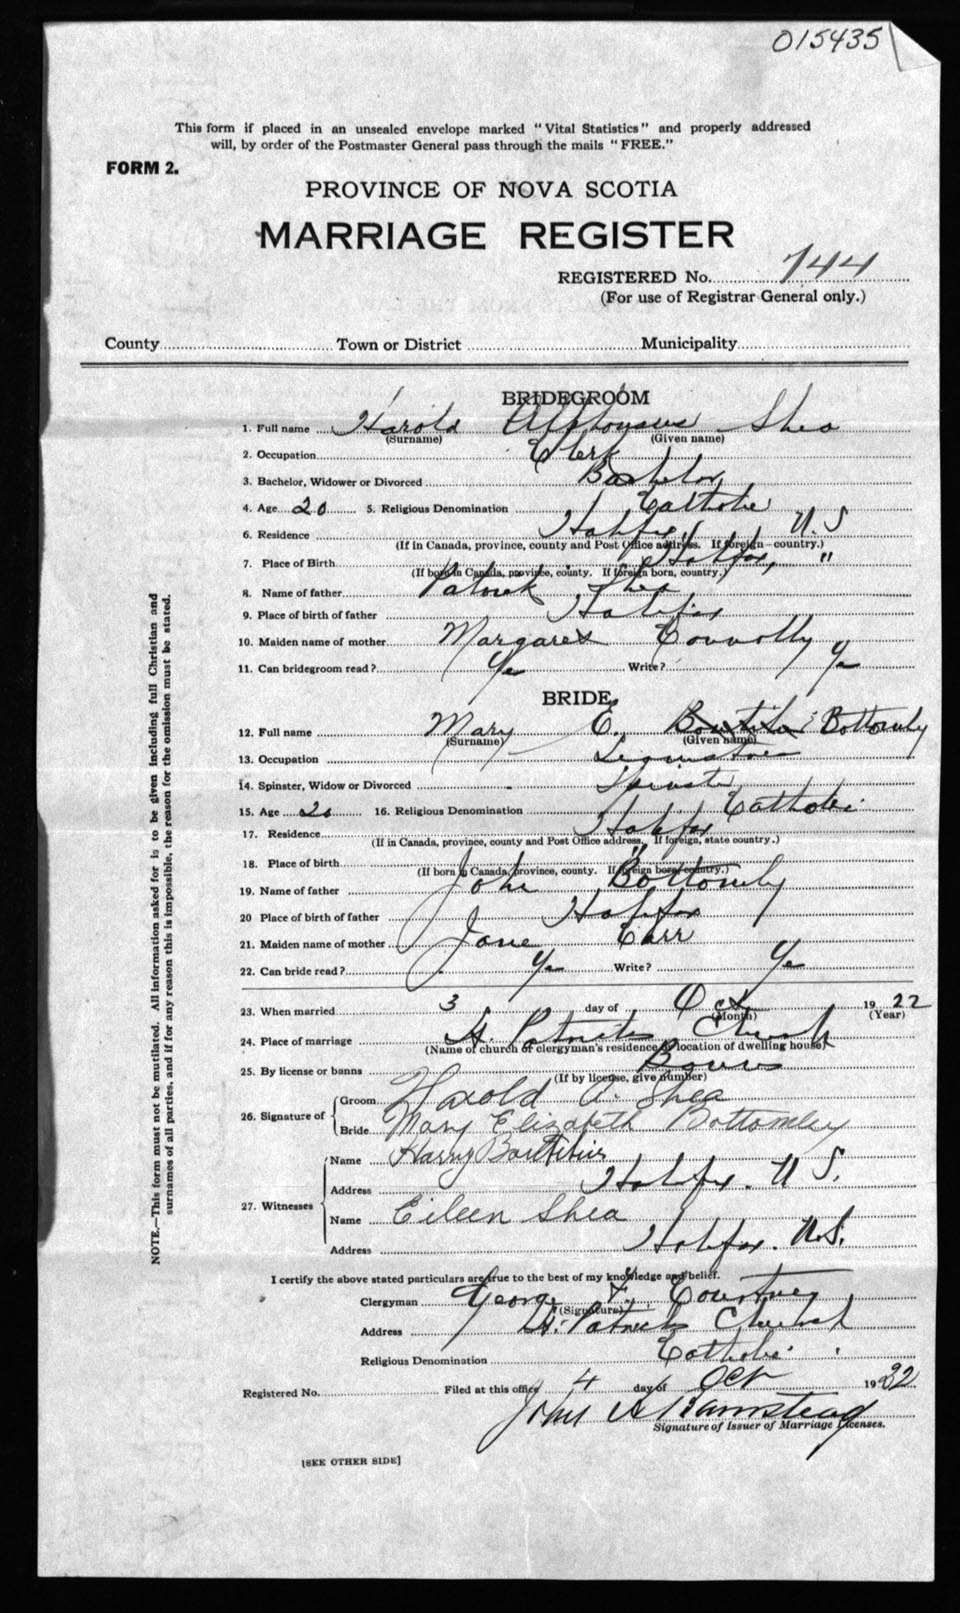 015435
This form if placed in an unsealed envelope marked "Vital Statistics" and properly addressed
will, by order of the Postmaster General pass through the mails "FREE."
FORM 2.
PROVINCE OF NOVA SCOTIA
MARRIAGE REGISTER
REGISTERED No. 744
(For use of Registrar General only.)
County Town or District Municipality
BRIDEGROOM
1. Full name Harold Alphonsus Shea
(Surname) (Given name)
2. Occupation Clerk
3. Bachelor, Widower or Divorced Bachelor
4. Age 20 5. Religious Denomination Catholic
6. Residence Halifax N.S
(If in Canada, province, county and Post Office address. If foreign country.)
7. Place of Birth Halifax, "
(If born in Canada, province, county. If foreign born, country.)
8. Name of father Patrick Shea
9. Place of birth of father Halifax
10. Maiden name of mother Margaret Connolly
11. Can bridegroom read? Yes Write? Yes
BRIDE
12. Full name Mary E. Bottomly
(Surname) (Given name)
13. Occupation
14. Spinster, Widow or Divorced Spinster
15. Age 20 16. Religious Denomination Catholic
17. Residence Halifax
(If in Canada, province, county and Post Office address. If foreign, state country.)
18. Place of birth "
(If born in Canada, province, county. If foreign born, country.)
19. Name of father John Bottomly
20 Place of birth of father Halifax
21. Maiden name of mother Jane Carr
22. Can bride read? Yes Write? Yes
23. When married 3 day of Oct 1922
(Month) (Year)
24. Place of marriage St. Patricks Church
(Name of church or clergyman's residence or location of dwelling house)
25. By license or banns Banns
(If by license, give number)
26. Signature of Groom Harold A. Shea
Bride Mary Elizabeth Bottomley
27. Witnesses Name Harry Boutilier
Address Halifax. N S.
Name Eileen Shea
Address Halifax. N.S.
I certify the above stated particulars are true to the best of my knowledge and belief.
Clergyman George F. Courtney
(Signature)
Address St. Patricks Church
Religious Denomination Catholic
Registered No. Filed at this office 4 day of Oct 1922
John A Barnstead
Signature of Issuer of Marriage Licenses.
[SEE OTHER SIDE]
NOTE.—This form must not be mutilated. All information asked for is to be given including full Christian and
surnames of all parties, and if for any reason this is impossible, the reason for the omission must be stated.